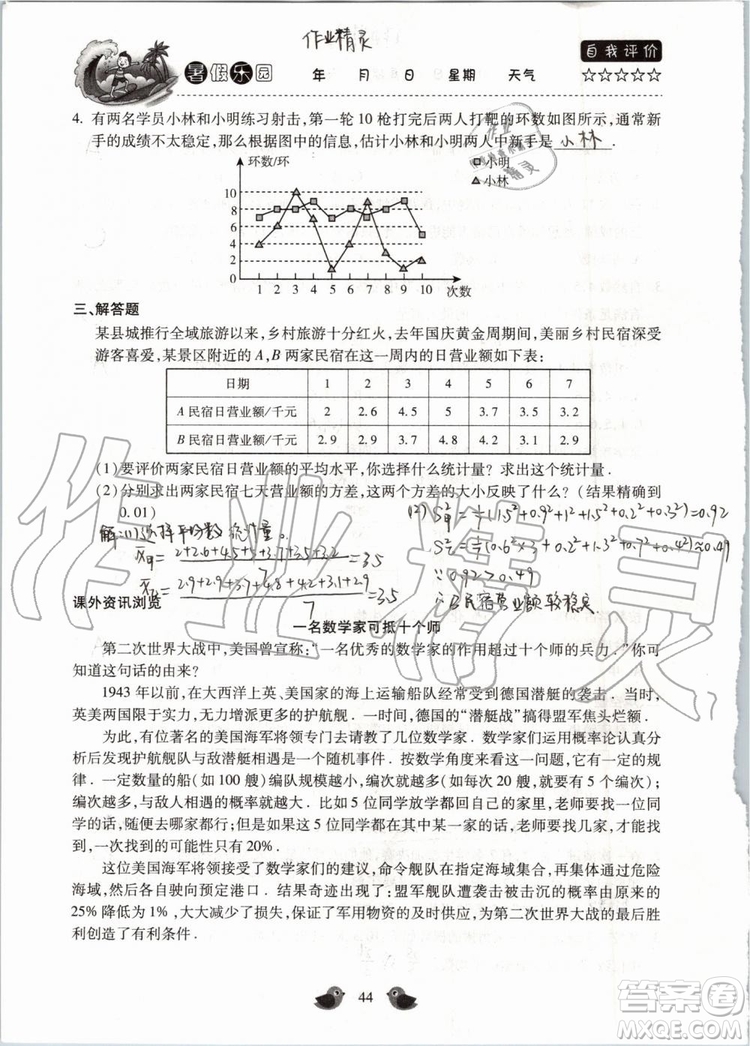 作业精灵
暑假乐园
年 月 日 星期 天气
自我评价
☆☆☆☆☆
4. 有两名学员小林和小明练习射击，第一轮 10 枪打完后两人打靶的环数如图所示，通常新
手的成绩不太稳定，那么根据图中的信息，估计小林和小明两人中新手是 小林 ．
环数/环
小明
小林
10
8
6
4
2
0
1 2 3 4 5 6 7 8 9 10 次数
三、解答题
某县城推行全域旅游以来，乡村旅游十分红火，去年国庆黄金周期间，美丽乡村民宿深受
游客喜爱，某景区附近的 A，B 两家民宿在这一周内的日营业额如下表：
日期 1 2 3 4 5 6 7
A 民宿日营业额/千元 2 2.6 4.5 5 3.7 3.5 3.2
B 民宿日营业额/千元 2.9 2.9 3.7 4.8 4.2 3.1 2.9
(1) 要评价两家民宿日营业额的平均水平，你选择什么统计量？求出这个统计量．
(2) 分别求出两家民宿七天营业额的方差，这两个方差的大小反映了什么？(结果精确到
0.01)
解：(1)选择平均数统计量。
x甲=(2+2.6+4.5+5+3.7+3.5+3.2)/7=3.5
x乙=(2.9+2.9+3.7+4.8+4.2+3.1+2.9)/7=3.5
(2) S²甲=1/7(1.5²+0.9²+1²+1.5²+0.2²+0.3²)≈0.92
S²乙=1/7(0.6²×3+0.2²+1.3²+0.7²+0.4²)≈0.49
∵0.92>0.49
∴B民宿营业额较稳定
课外资讯浏览
一名数学家可抵十个师
第二次世界大战中，美国曾宣称：“一名优秀的数学家的作用超过十个师的兵力．”你可
知道这句话的由来？
1943 年以前，在大西洋上英、美国家的海上运输船队经常受到德国潜艇的袭击．当时，
英美两国限于实力，无力增派更多的护航舰．一时间，德国的“潜艇战”搞得盟军焦头烂额．
为此，有位著名的美国海军将领专门去请教了几位数学家．数学家们运用概率论认真分
析后发现护航舰队与潜艇相遇是一个随机事件．按数学角度来看这一问题，它有一定的规
律．一定数量的船(如 100 艘)编队规模越小，编次就越多(如每次 20 艘，就要有 5 个编次)；
编次越多，与敌人相遇的概率就越大．比如 5 位同学放学都回自己的家里，老师要找一位同
学的话，随便去哪家都行．但如果这 5 位同学都在其中某一家的话，老师要找几家，才能找
到，一次找到的可能性只有 20%．
这位美国海军将领接受了数学家们的建议，命令舰队在指定海域集合，再集体通过危险
海域，然后各自驶向预定港口．结果奇迹出现了：盟军舰队遭袭击被击沉的概率由原来的
25% 降低为 1%，大大减少了损失，保证了军用物资的及时供应，为第二次世界大战的最后胜
利创造了有利条件．
44
作业精灵
答案圈
MXQE.COM